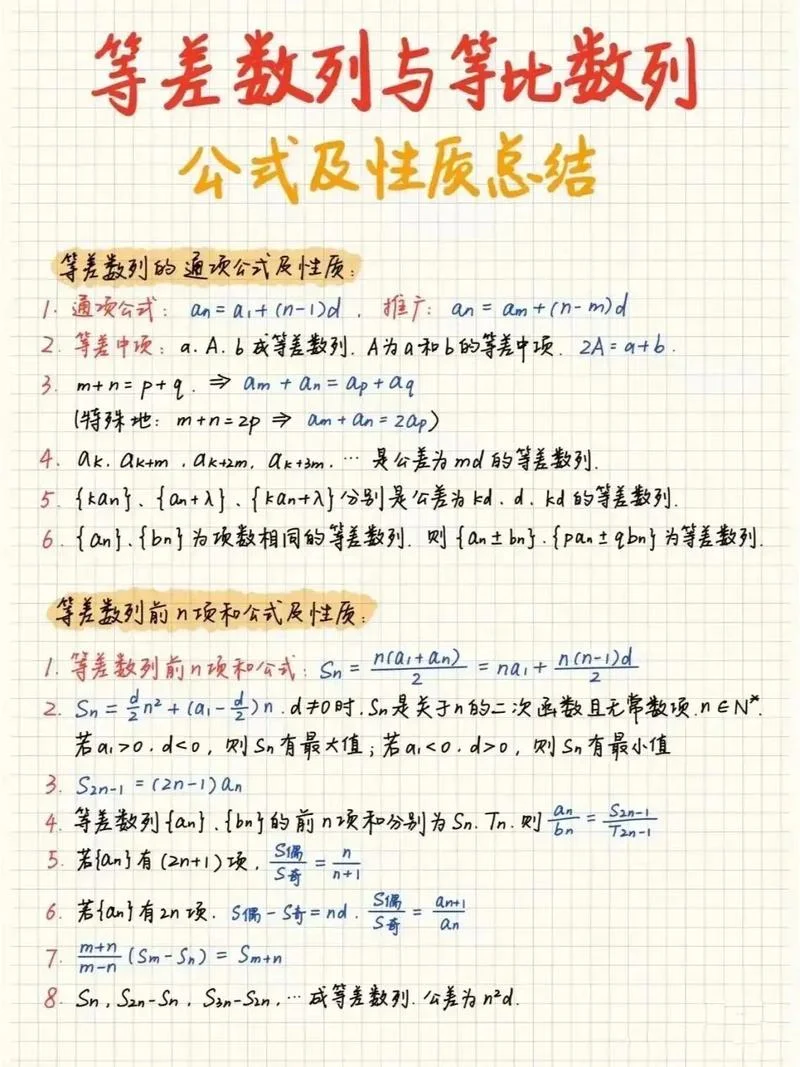 等差数列与等比数列
公式及性质总结
等差数列的通项公式及性质:
1. 通项公式: aₙ=a₁+(n-1)d, 推广: aₙ=aₘ+(n-m)d
2. 等差中项: a.A.b成等差数列. A为a和b的等差中项. 2A=a+b.
3. m+n=p+q. ⇒ aₘ+aₙ=aₚ+a_q
(特殊地: m+n=2p ⇒ aₘ+aₙ=2aₚ)
4. aₖ, aₖ₊ₘ, aₖ₊₂ₘ, aₖ₊₃ₘ, … 是公差为md的等差数列.
5. {kaₙ}、{aₙ+λ}、{kaₙ+λ}分别是公差为kd.d.kd的等差数列.
6. {aₙ}、{bₙ}为项数相同的等差数列. 则{aₙ±bₙ}.{paₙ±qbₙ}为等差数列.
等差数列前n项和公式及性质:
1. 等差数列前n项和公式: Sₙ=n(a₁+aₙ)/2=na₁+n(n-1)d/2
2. Sₙ=d/2n²+(a₁-d/2)n.d≠0时.Sₙ是关于n的二次函数且无常数项.n∈N*.
若a₁>0.d<0, 则Sₙ有最大值;若a₁<0.d>0, 则Sₙ有最小值
3. S₂ₙ₋₁=(2n-1)aₙ
4. 等差数列{aₙ}、{bₙ}的前n项和分别为Sₙ.Tₙ.则aₙ/bₙ=S₂ₙ₋₁/T₂ₙ₋₁
5. 若{aₙ}有(2n+1)项, S偶/S奇=n/n+1
6. 若{aₙ}有2n项. S偶-S奇=nd. S偶/S奇=aₙ₊₁/aₙ
7. m+n/m-n(Sₘ-Sₙ)=Sₘ₊ₙ
8. Sₙ, S₂ₙ-Sₙ, S₃ₙ-S₂ₙ, …成等差数列.公差为n²d.